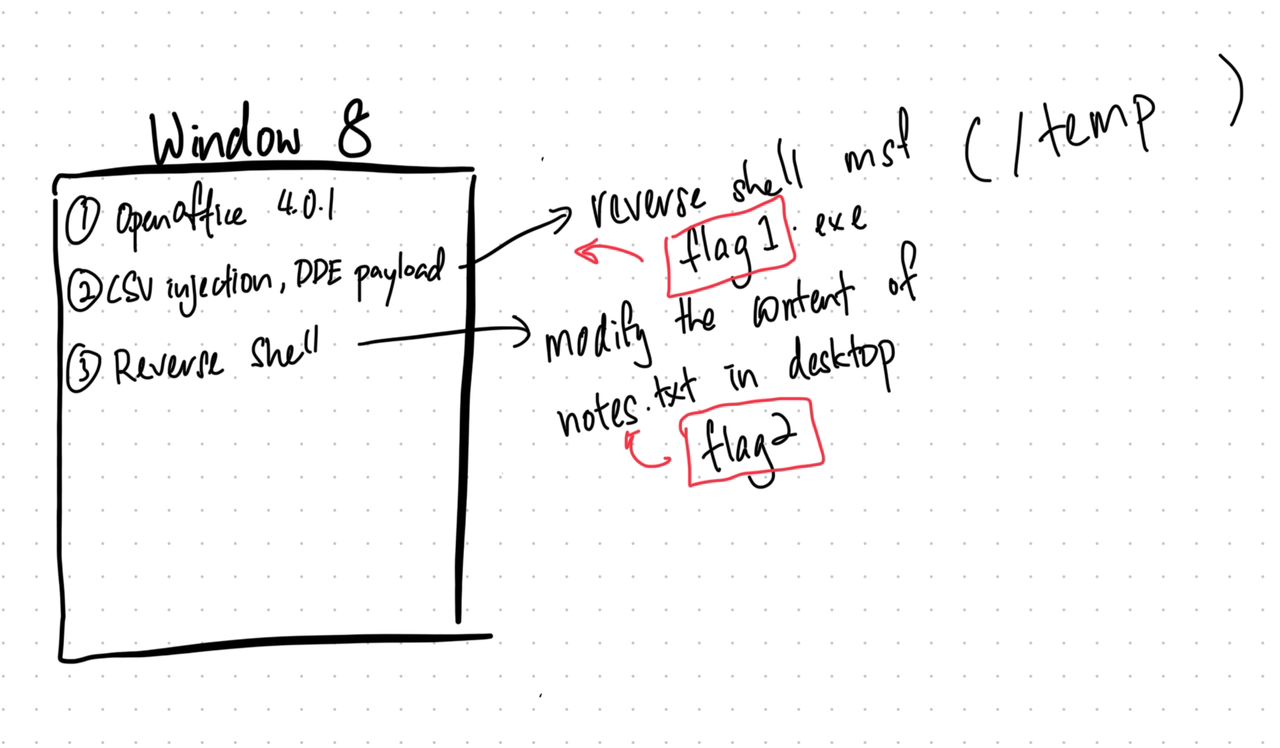 Window 8
① OpenOffice 4.0.1
② CSV injection, DDE payload
③ Reverse shell
reverse shell msf (/temp )
flag1.exe
modify the content of
notes.txt in desktop
flag2